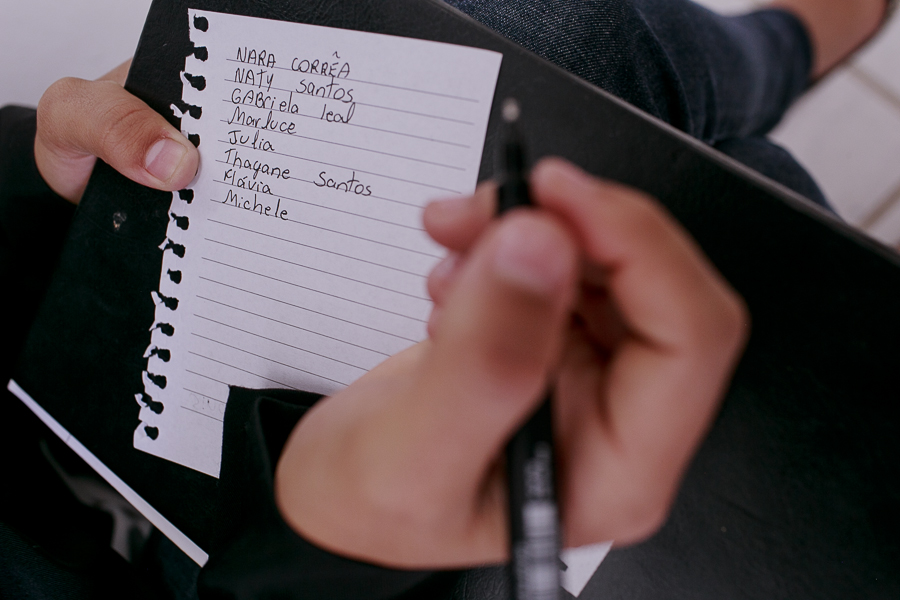 NARA CORRÊA
NATY Santos
GABriela leal
Marluce
Julia
Thayane Santos
Flávia
Michele